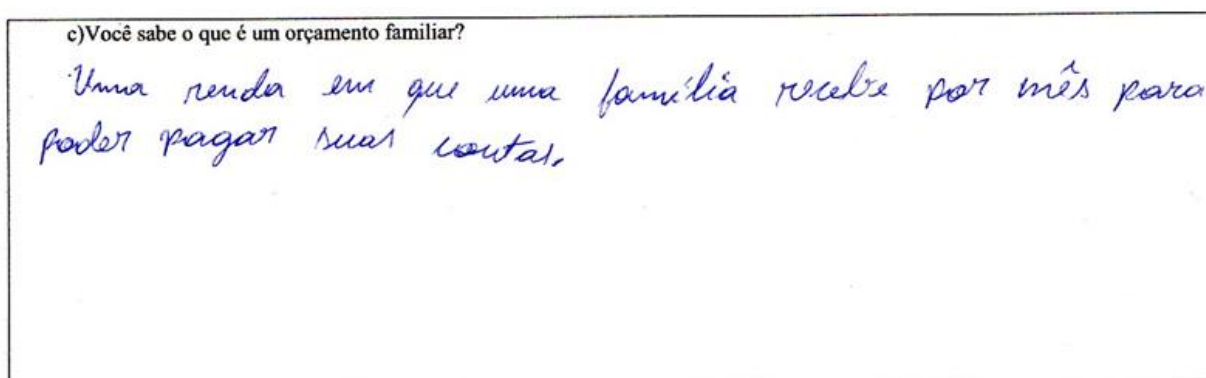 c)Você sabe o que é um orçamento familiar?
Uma renda em que uma família recebe por mês para
poder pagar suas contas.